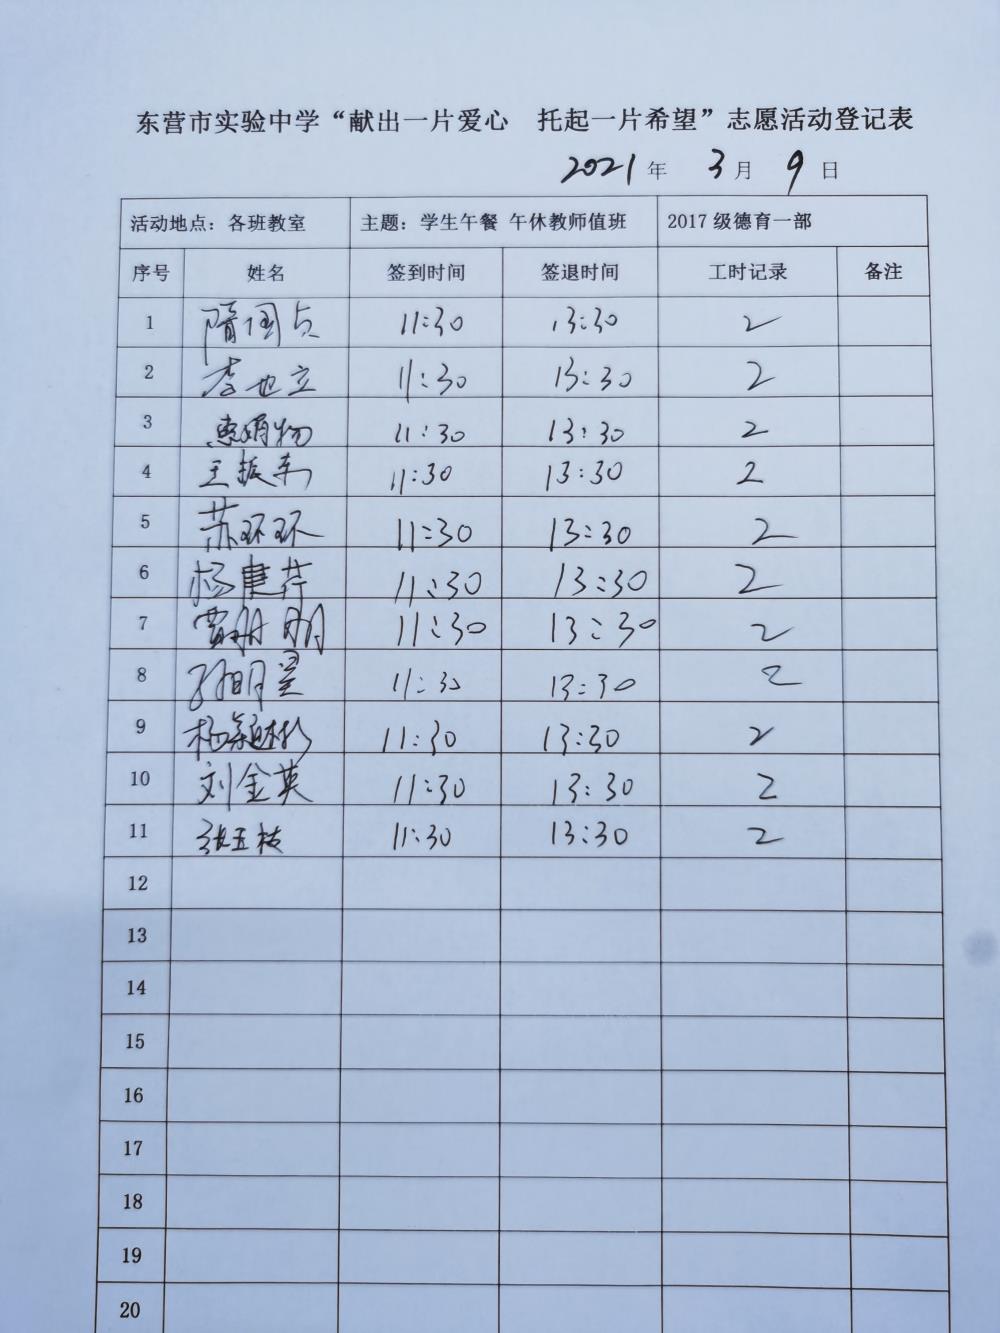 东营市实验中学“献出一片爱心 托起一片希望”志愿活动登记表
2021 年 3 月 9 日
活动地点：各班教室 主题：学生午餐 午休教师值班 2017 级德育一部
序号 姓名 签到时间 签退时间 工时记录 备注
1 隋国贞 11:30 13:30 2
2 李也立 11:30 13:30 2
3 11:30 13:30 2
4 王振东 11:30 13:30 2
5 苏环环 11:30 13:30 2
6 杨建芹 11:30 13:30 2
7 贾朋朋 11:30 13:30 2
8 孙明星 11:30 13:30 2
9 杨 11:30 13:30 2
10 刘金英 11:30 13:30 2
11 张玉枝 11:30 13:30 2
12
13
14
15
16
17
18
19
20